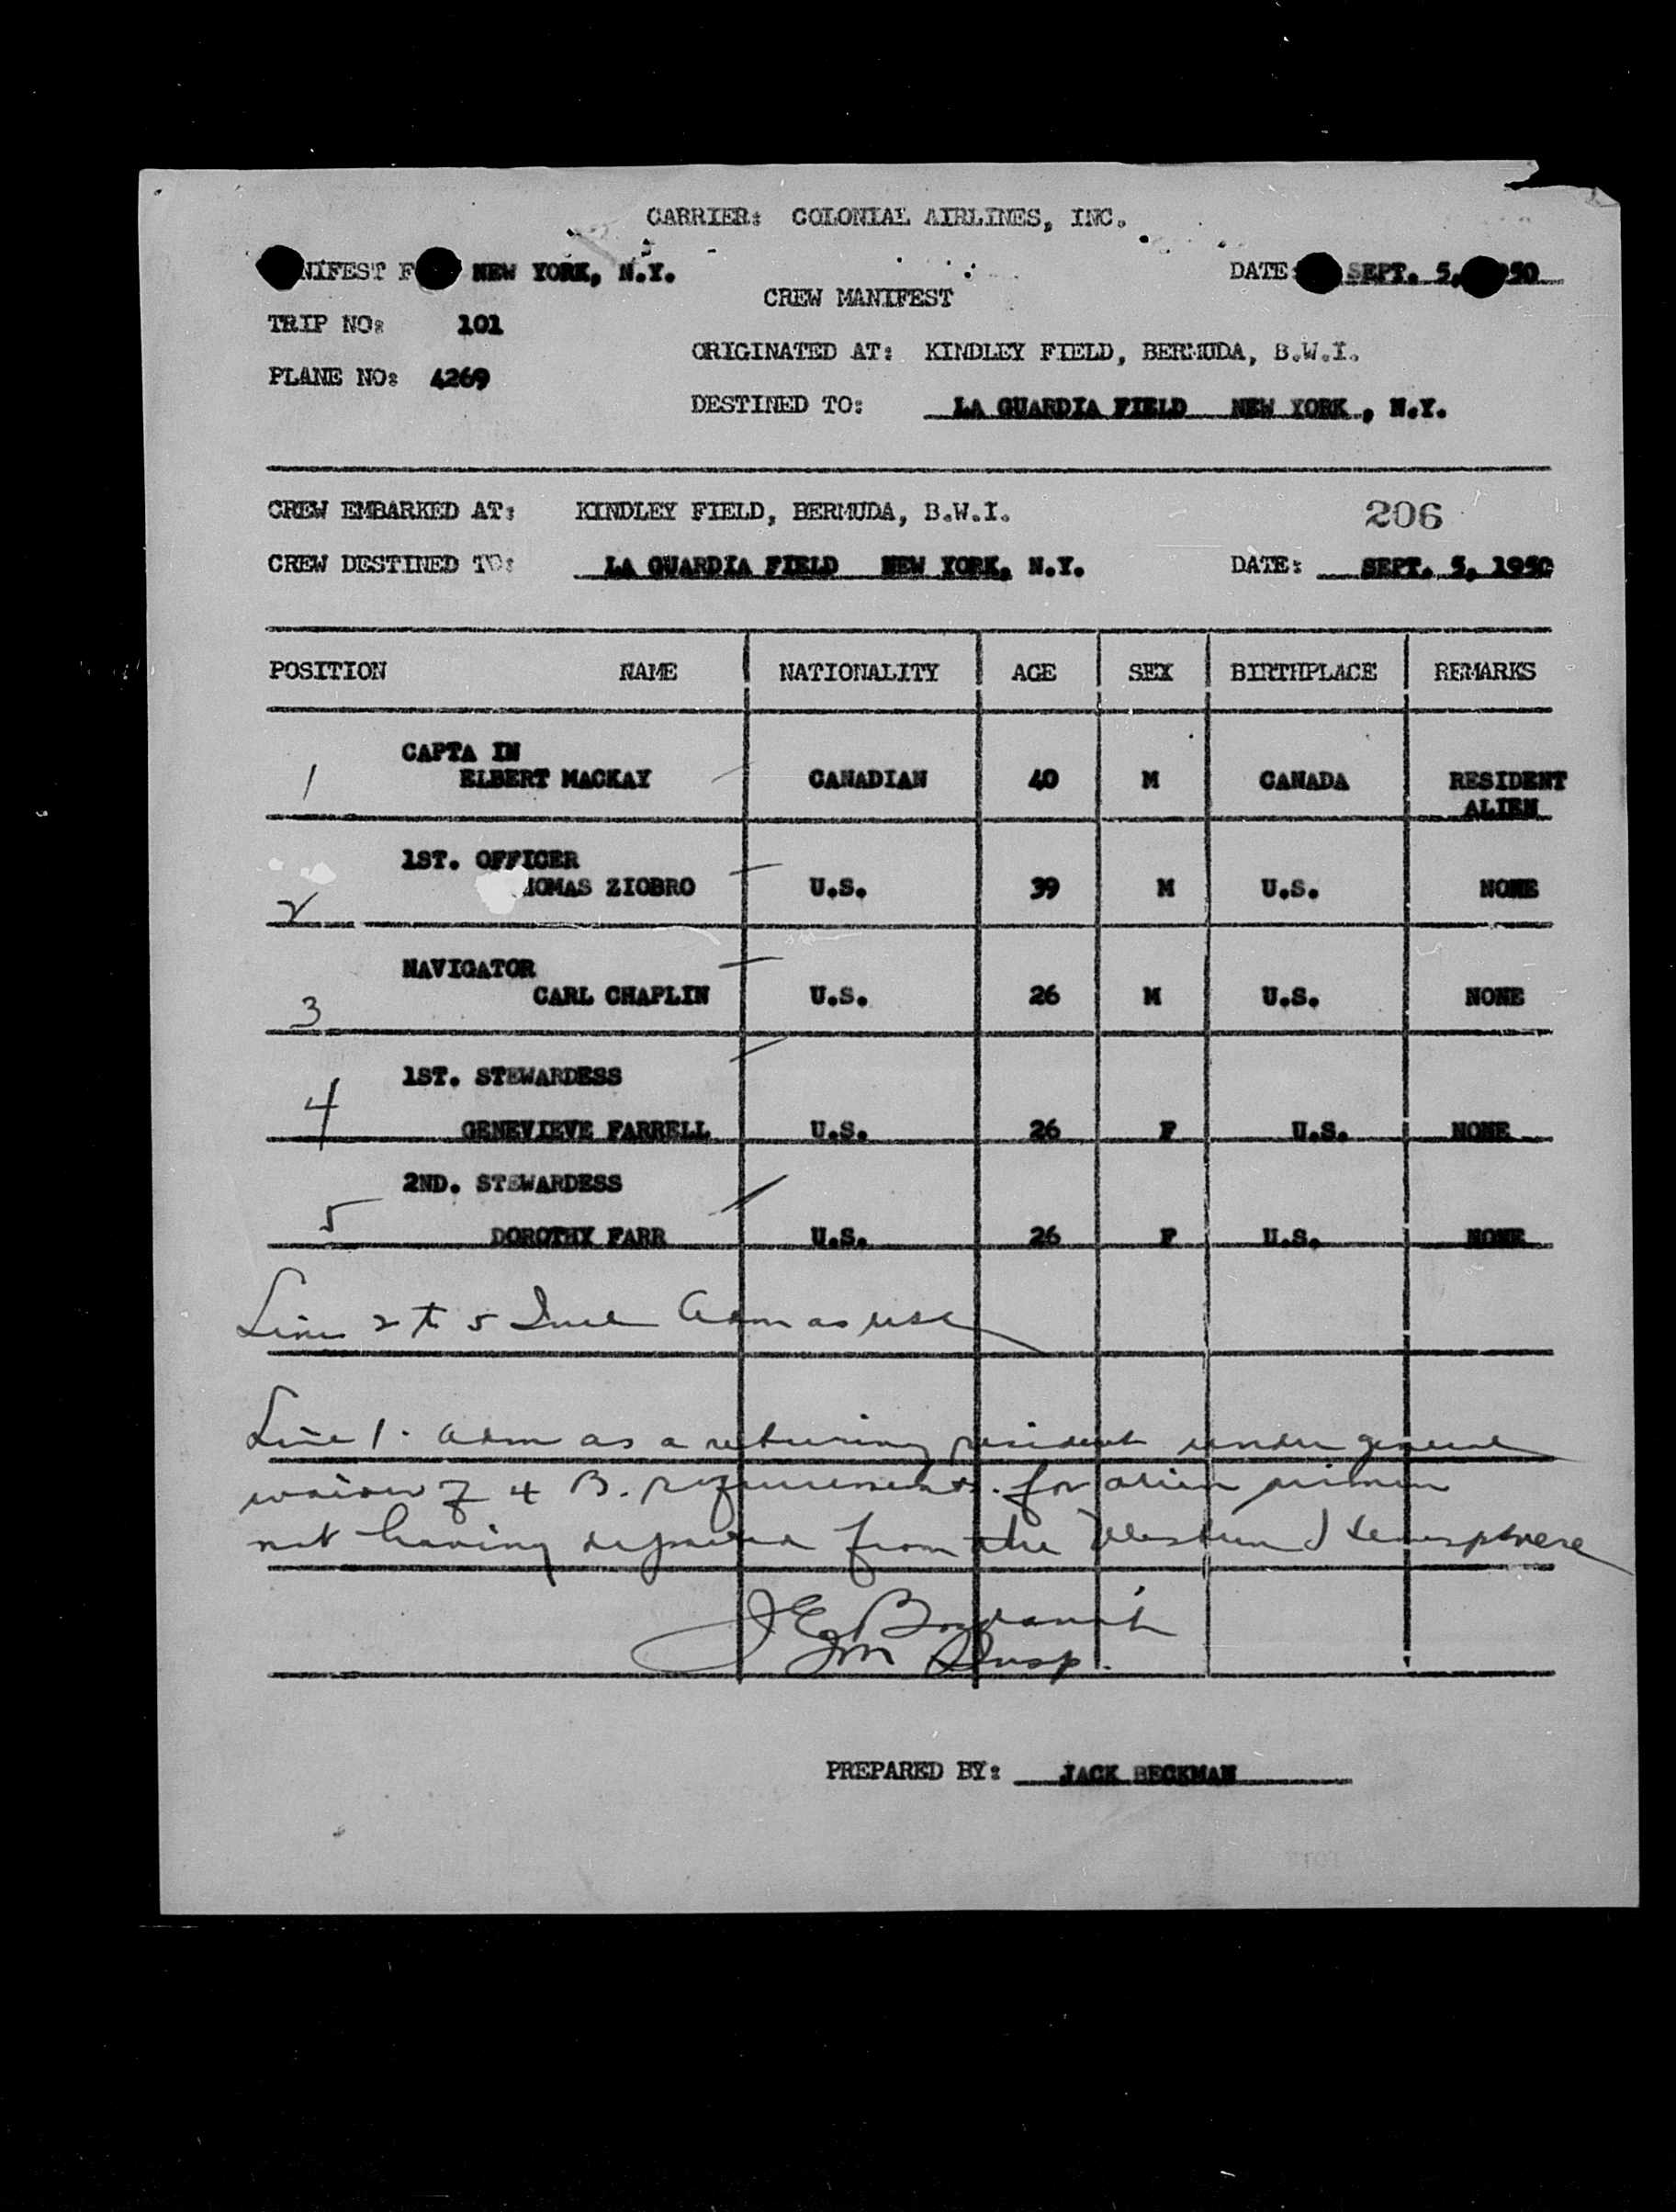 CARRIER: COLONIAL AIRLINES, INC.
NIFEST F NEW YORK, N.Y.
DATE: SEPT. 5, 50
CREW MANIFEST
TRIP NO: 101
ORIGINATED AT: KINDLEY FIELD, BERMUDA, B.W.I.
PLANE NO: 4269
DESTINED TO: LA GUARDIA FIELD NEW YORK, N.Y.
CREW EMBARKED AT: KINDLEY FIELD, BERMUDA, B.W.I.
206
CREW DESTINED TO: LA GUARDIA FIELD NEW YORK, N.Y. DATE: SEPT. 5, 1950
POSITION NAME NATIONALITY AGE SEX BIRTHPLACE REMARKS
CAPTA IN
1 ELBERT MACKAY CANADIAN 40 M CANADA RESIDENT
ALIEN
1ST. OFFICER
2 HOMAS ZIOBRO U.S. 39 M U.S. NONE
NAVIGATOR
3 CARL CHAPLIN U.S. 26 M U.S. NONE
1ST. STEWARDESS
4 GENEVIEVE FARRELL U.S. 26 F U.S. NONE
2ND. STEWARDESS
5 DOROTHY FARR U.S. 26 F U.S. NONE
Line 2 to 5 Incl Adm as USC
Line 1. adm as a returning resident under general
waiver of 4 B. requirements. for alien airmen
not having departed from the Western Hemisphere
Imm Insp.
PREPARED BY: JACK BECKMAN